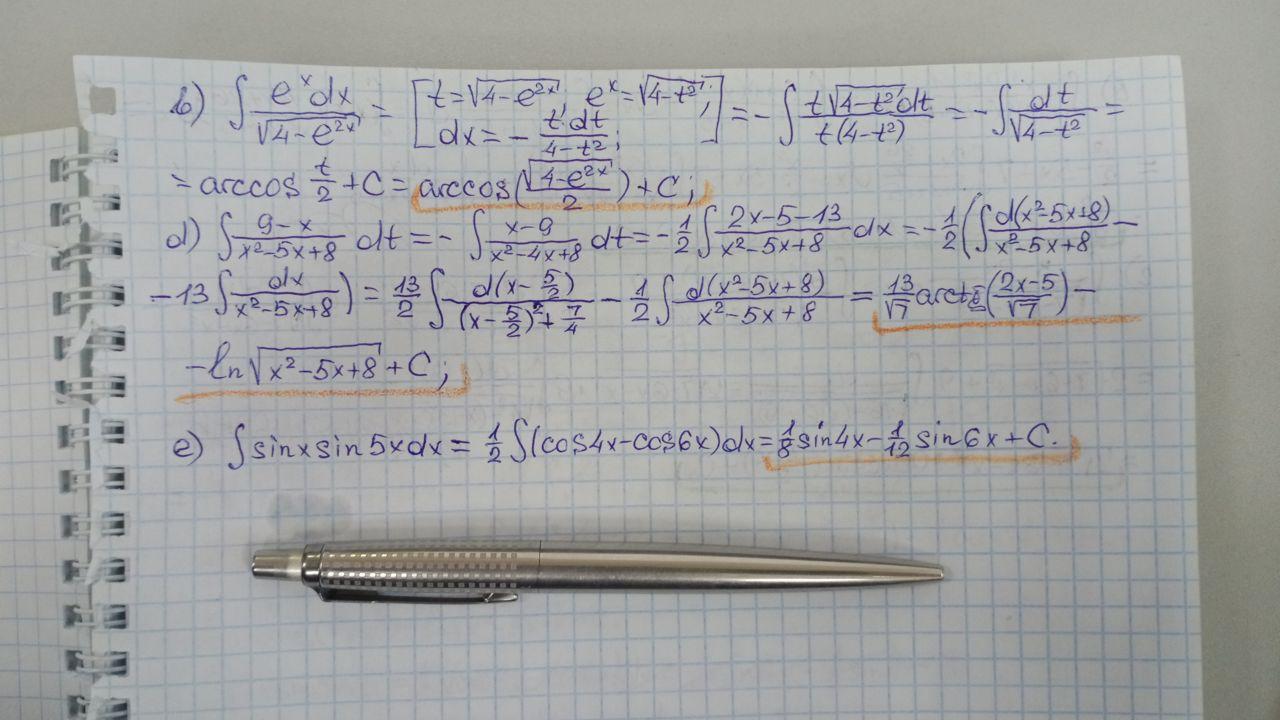 b) ∫ e^x dx / √(4-e^(2x)) = [ t=√(4-e^(2x)), e^x=√(4-t²); dx = - t dt / (4-t²); ] = - ∫ t√(4-t²)dt / t(4-t²) = - ∫ dt / √(4-t²) =
= arccos t/2 + C = arccos(√(4-e^(2x)) / 2) + C;
d) ∫ (9-x)/(x²-5x+8) dt = - ∫ (x-9)/(x²-4x+8) dt = - 1/2 ∫ (2x-5-13)/(x²-5x+8) dx = - 1/2 (∫ d(x²-5x+8)/(x²-5x+8) -
- 13 ∫ dx/(x²-5x+8)) = 13/2 ∫ d(x-5/2)/((x-5/2)²+7/4) - 1/2 ∫ d(x²-5x+8)/(x²-5x+8) = 13/√7 arctg((2x-5)/√7) -
- ln√(x²-5x+8) + C;
e) ∫ sinx sin5x dx = 1/2 ∫(cos4x-cos6x)dx = 1/8 sin4x - 1/12 sin6x + C.